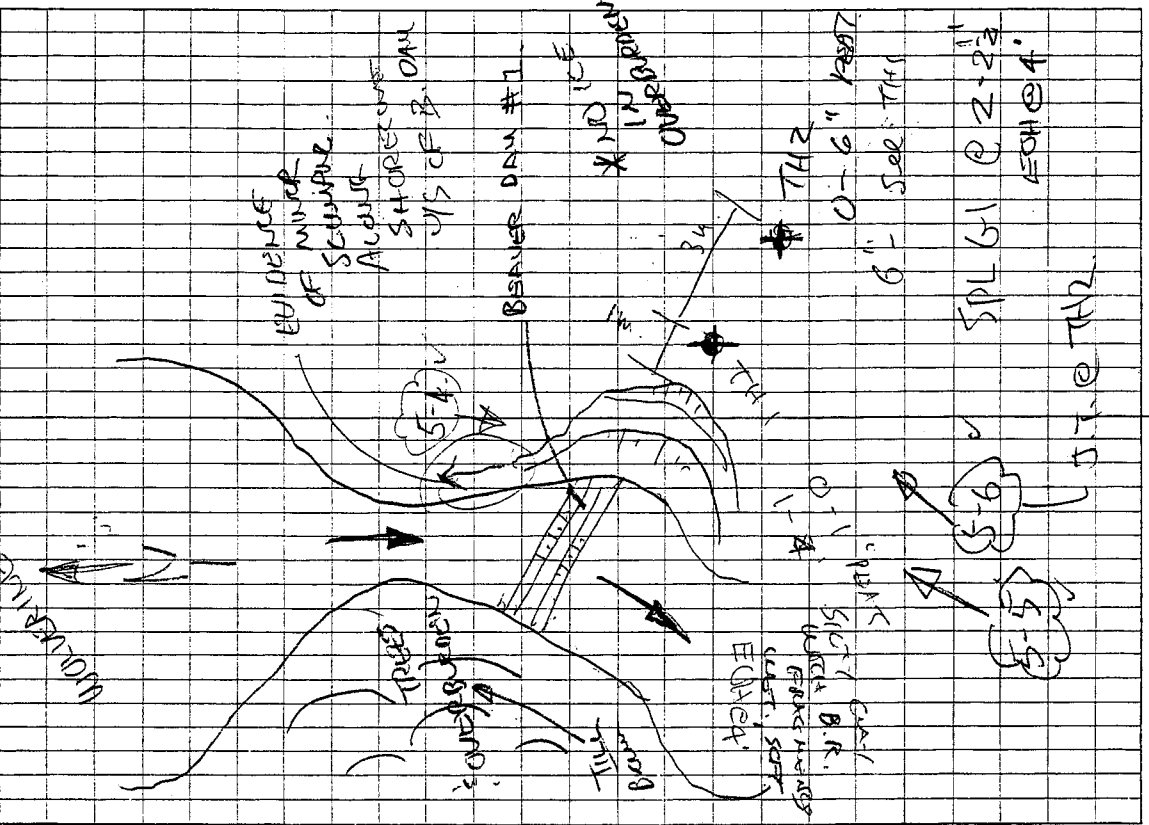 EVIDENCE
OF MINOR
ALONG
SHORELINE
U/S OF B. DAM
BEAVER DAM #1
* NO ICE
IN
OVERBURDEN
TH2
0-6" PEAT
6"- See TH1
SPL G1 @ 2-2½'
EOH @ 4'
3m
1m
TH1
0-1 PEAT
1-4 SILTY CLAY
WITH B.R.
FRAGMENTS
WET, SOFT
EOH@4'
5-4 ✓
5-6 ✓
5-5 ✓
J.T. @ TH2
TREED
OVERBURDEN
TILL
WOLVERINE